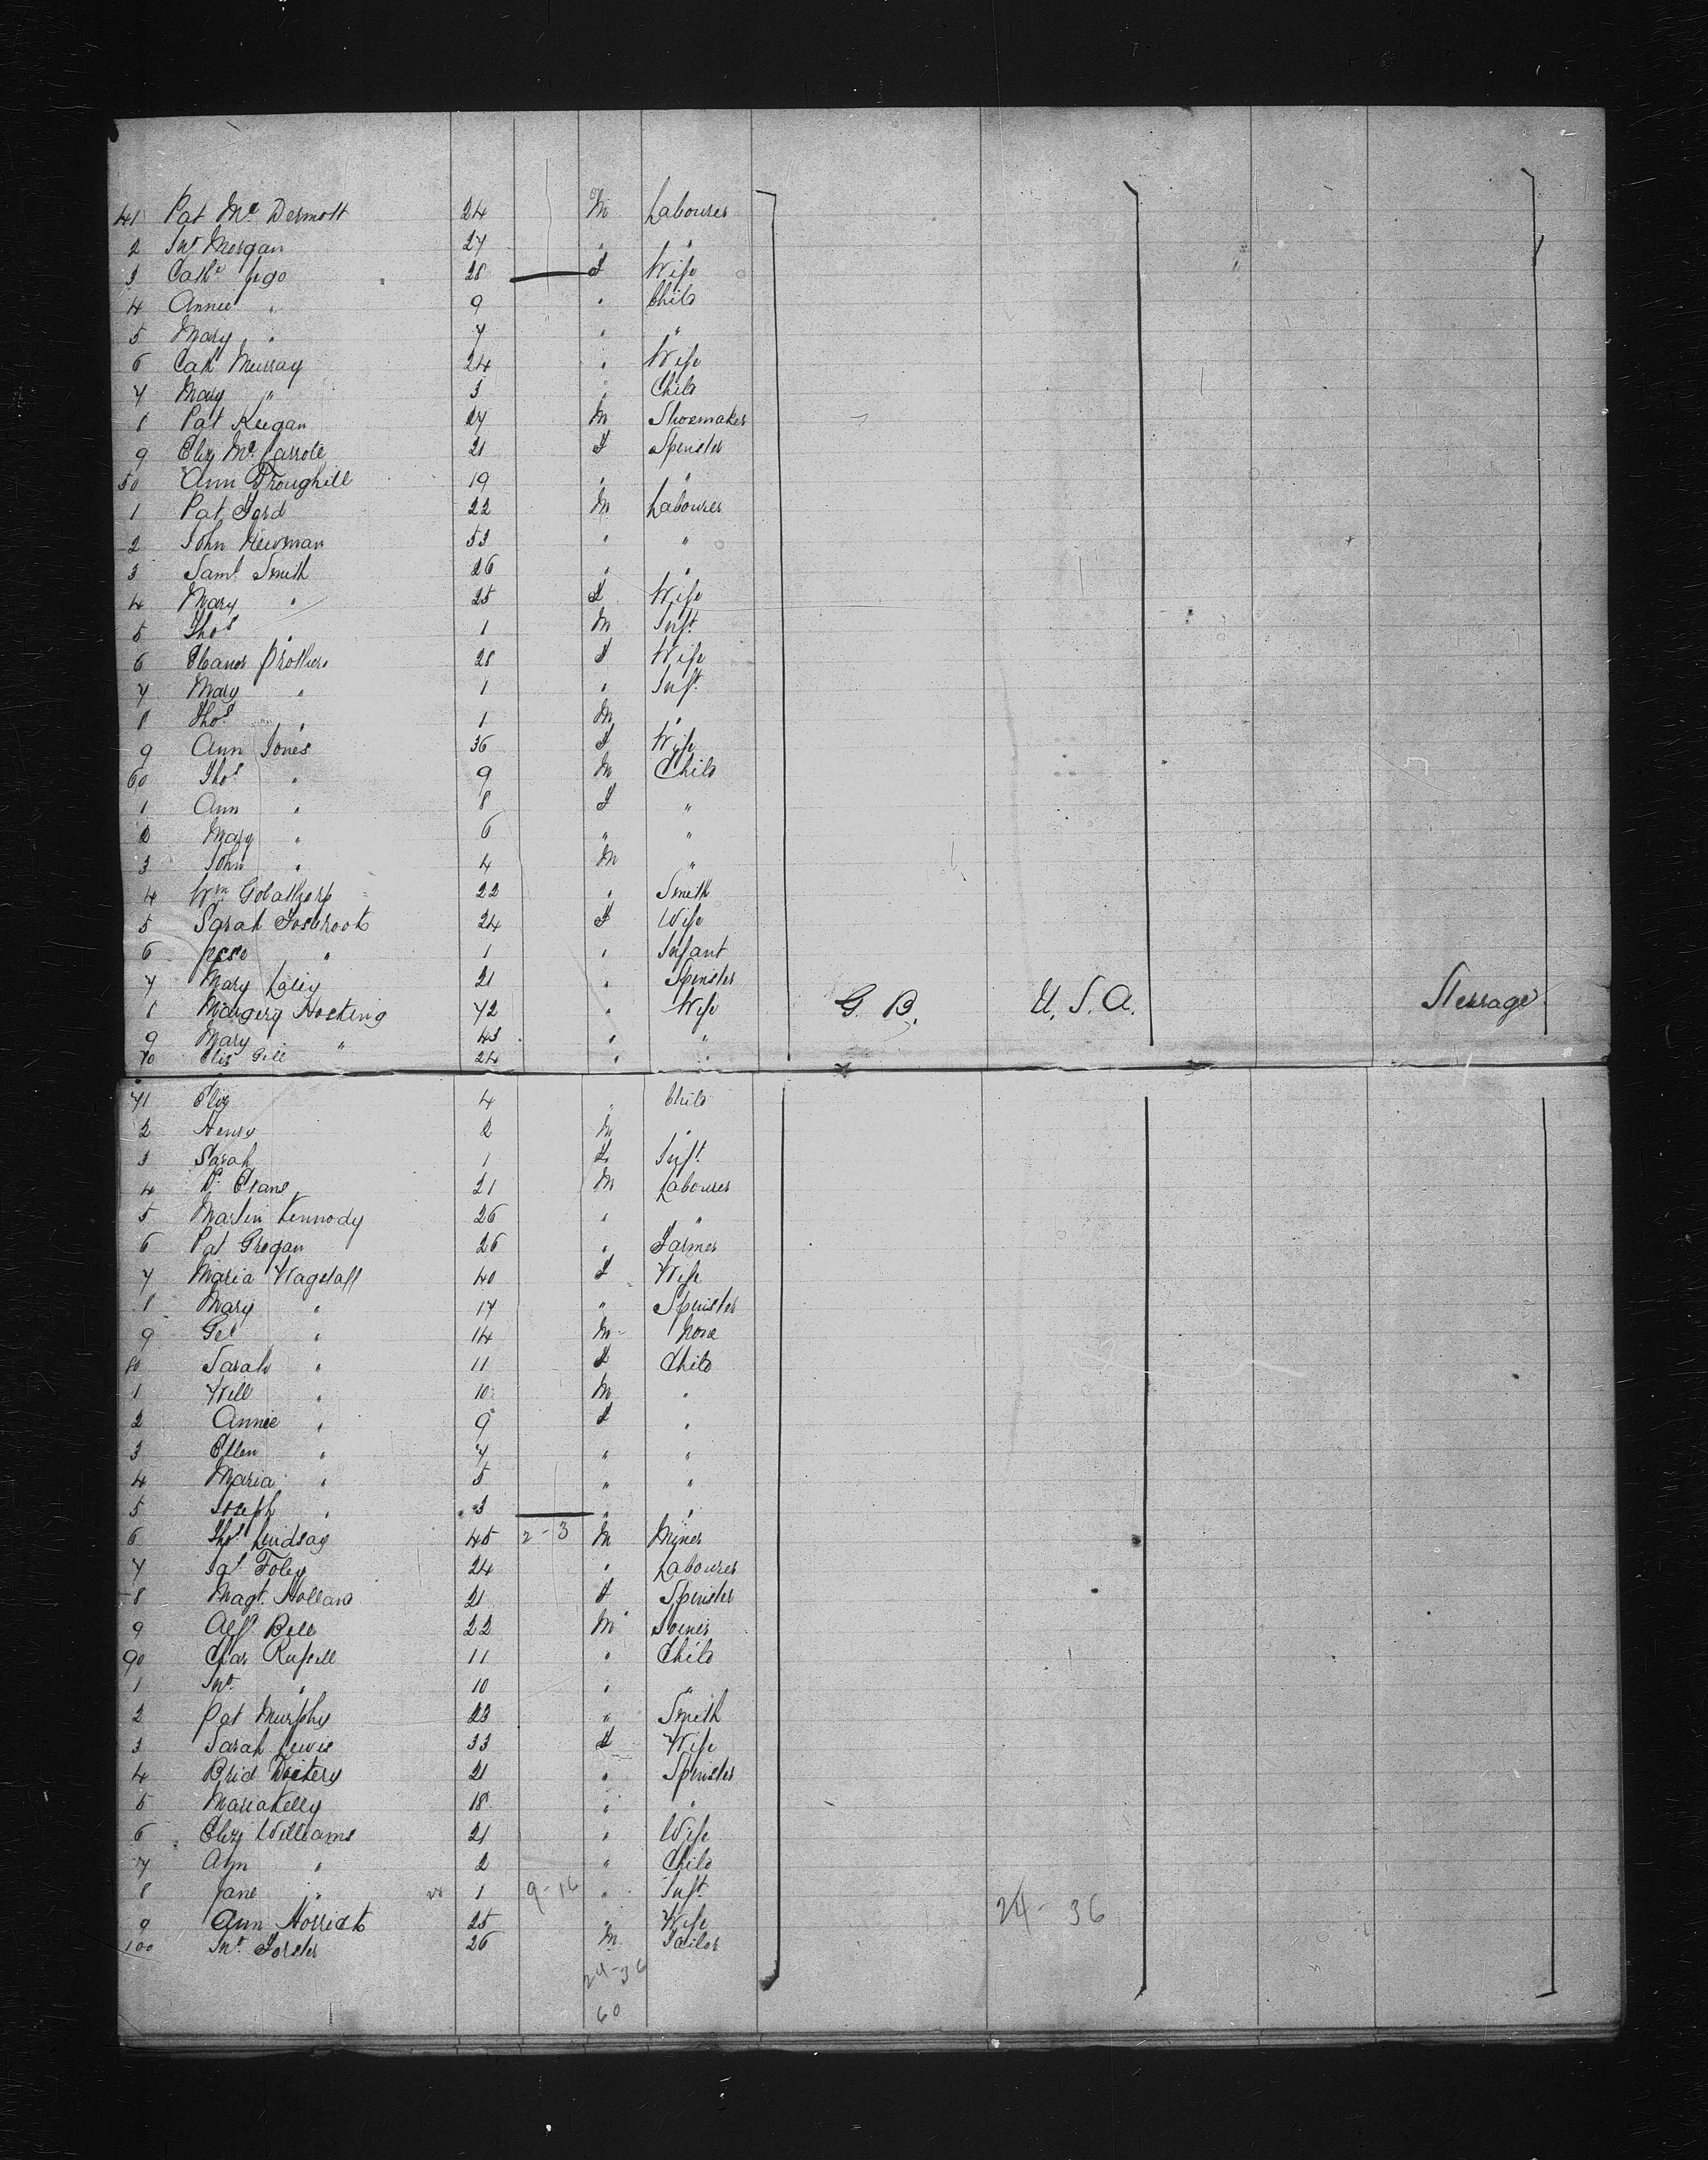 41 Pat McDermott 24 M Labourer
2 Jno Morgan 27 " "
3 Cathe Igo 28 F Wife
4 Annie " 9 " Child
5 Mary " 7 " "
6 Cath Murray 24 " Wife
7 Mary " 3 " Child
8 Pat Keegan 27 M Shoemaker
9 Eliz McCarrole 21 F Spinster
50 Ann Troughill 19 " "
1 Pat Ford 22 M Labourer
2 John Newman 53 " "
3 Saml Smith 26 " "
4 Mary " 25 F Wife
5 Thos " 1 M Inft
6 Eleanor Brothers 28 F Wife
7 Mary " 1 " Inft
8 Thos " 1 M "
9 Ann Jones 36 F Wife
60 Thos " 9 M Child
1 Ann " 8 F "
2 Mary " 6 " "
3 John " 4 M "
4 Wm 22 " Smith
5 Sarah Fosbrook 24 F Wife
6 " 1 " Infant
7 Mary 21 " Spinster
8 Margery Hocking 42 " Wife G. B. U. S. A. Steerage
9 Mary " 43 " "
70 Eliz Gill 24 " "
71 Eliz 4 " Child
2 Henry 2 M "
3 Sarah 1 F Inft
4 Evans 21 M Labourer
5 Martin Kennody 26 " "
6 Pat Grogan 26 " Farmer
7 Maria Wagstaff 40 F Wife
8 Mary " 17 " Spinster
9 Geo " 14 M None
80 Sarah " 11 F Child
1 Will " 10 M "
2 Annie " 9 F "
3 Ellen " 7 " "
4 Maria " 5 " "
5 Joseph " 3 " "
6 Thos Lindsay 45 2-3 M Miner
7 Jas Foley 24 " Labourer
8 Magt Holland 21 F Spinster
9 Alfd Bell 22 M Joiner
90 Chas Russell 11 " Child
1 Jno " 10 " "
2 Pat Murphy 23 " Smith
3 Sarah Lewis 33 F Wife
4 Brid Dockery 21 " Spinster
5 Maria Kelly 18 " "
6 Eliz Williams 21 " Wife
7 Ann " 2 " Child
8 Jane " 1 9-16 " Inft
9 Ann 25 " Wife 24-36
100 Jno Forster 26 M Tailor
24-36
60